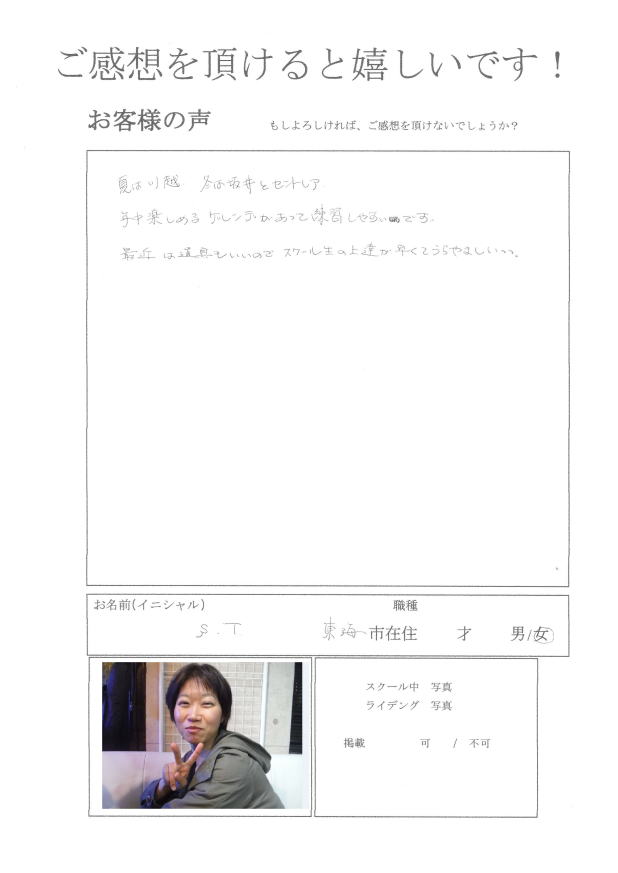 ご感想を頂けると嬉しいです！
お客様の声 もしよろしければ、ご感想を頂けないでしょうか？
夏は川越 冬は坂井とセントレア
年中楽しめるゲレンデがあって練習しやすいです。
最近は道具もいいのでスクール生の上達が早くてうらやましいっっ。
お名前(イニシャル) 職種
S.T. 東海市在住 才 男/女
スクール中 写真
ライデング 写真
掲載 可 / 不可